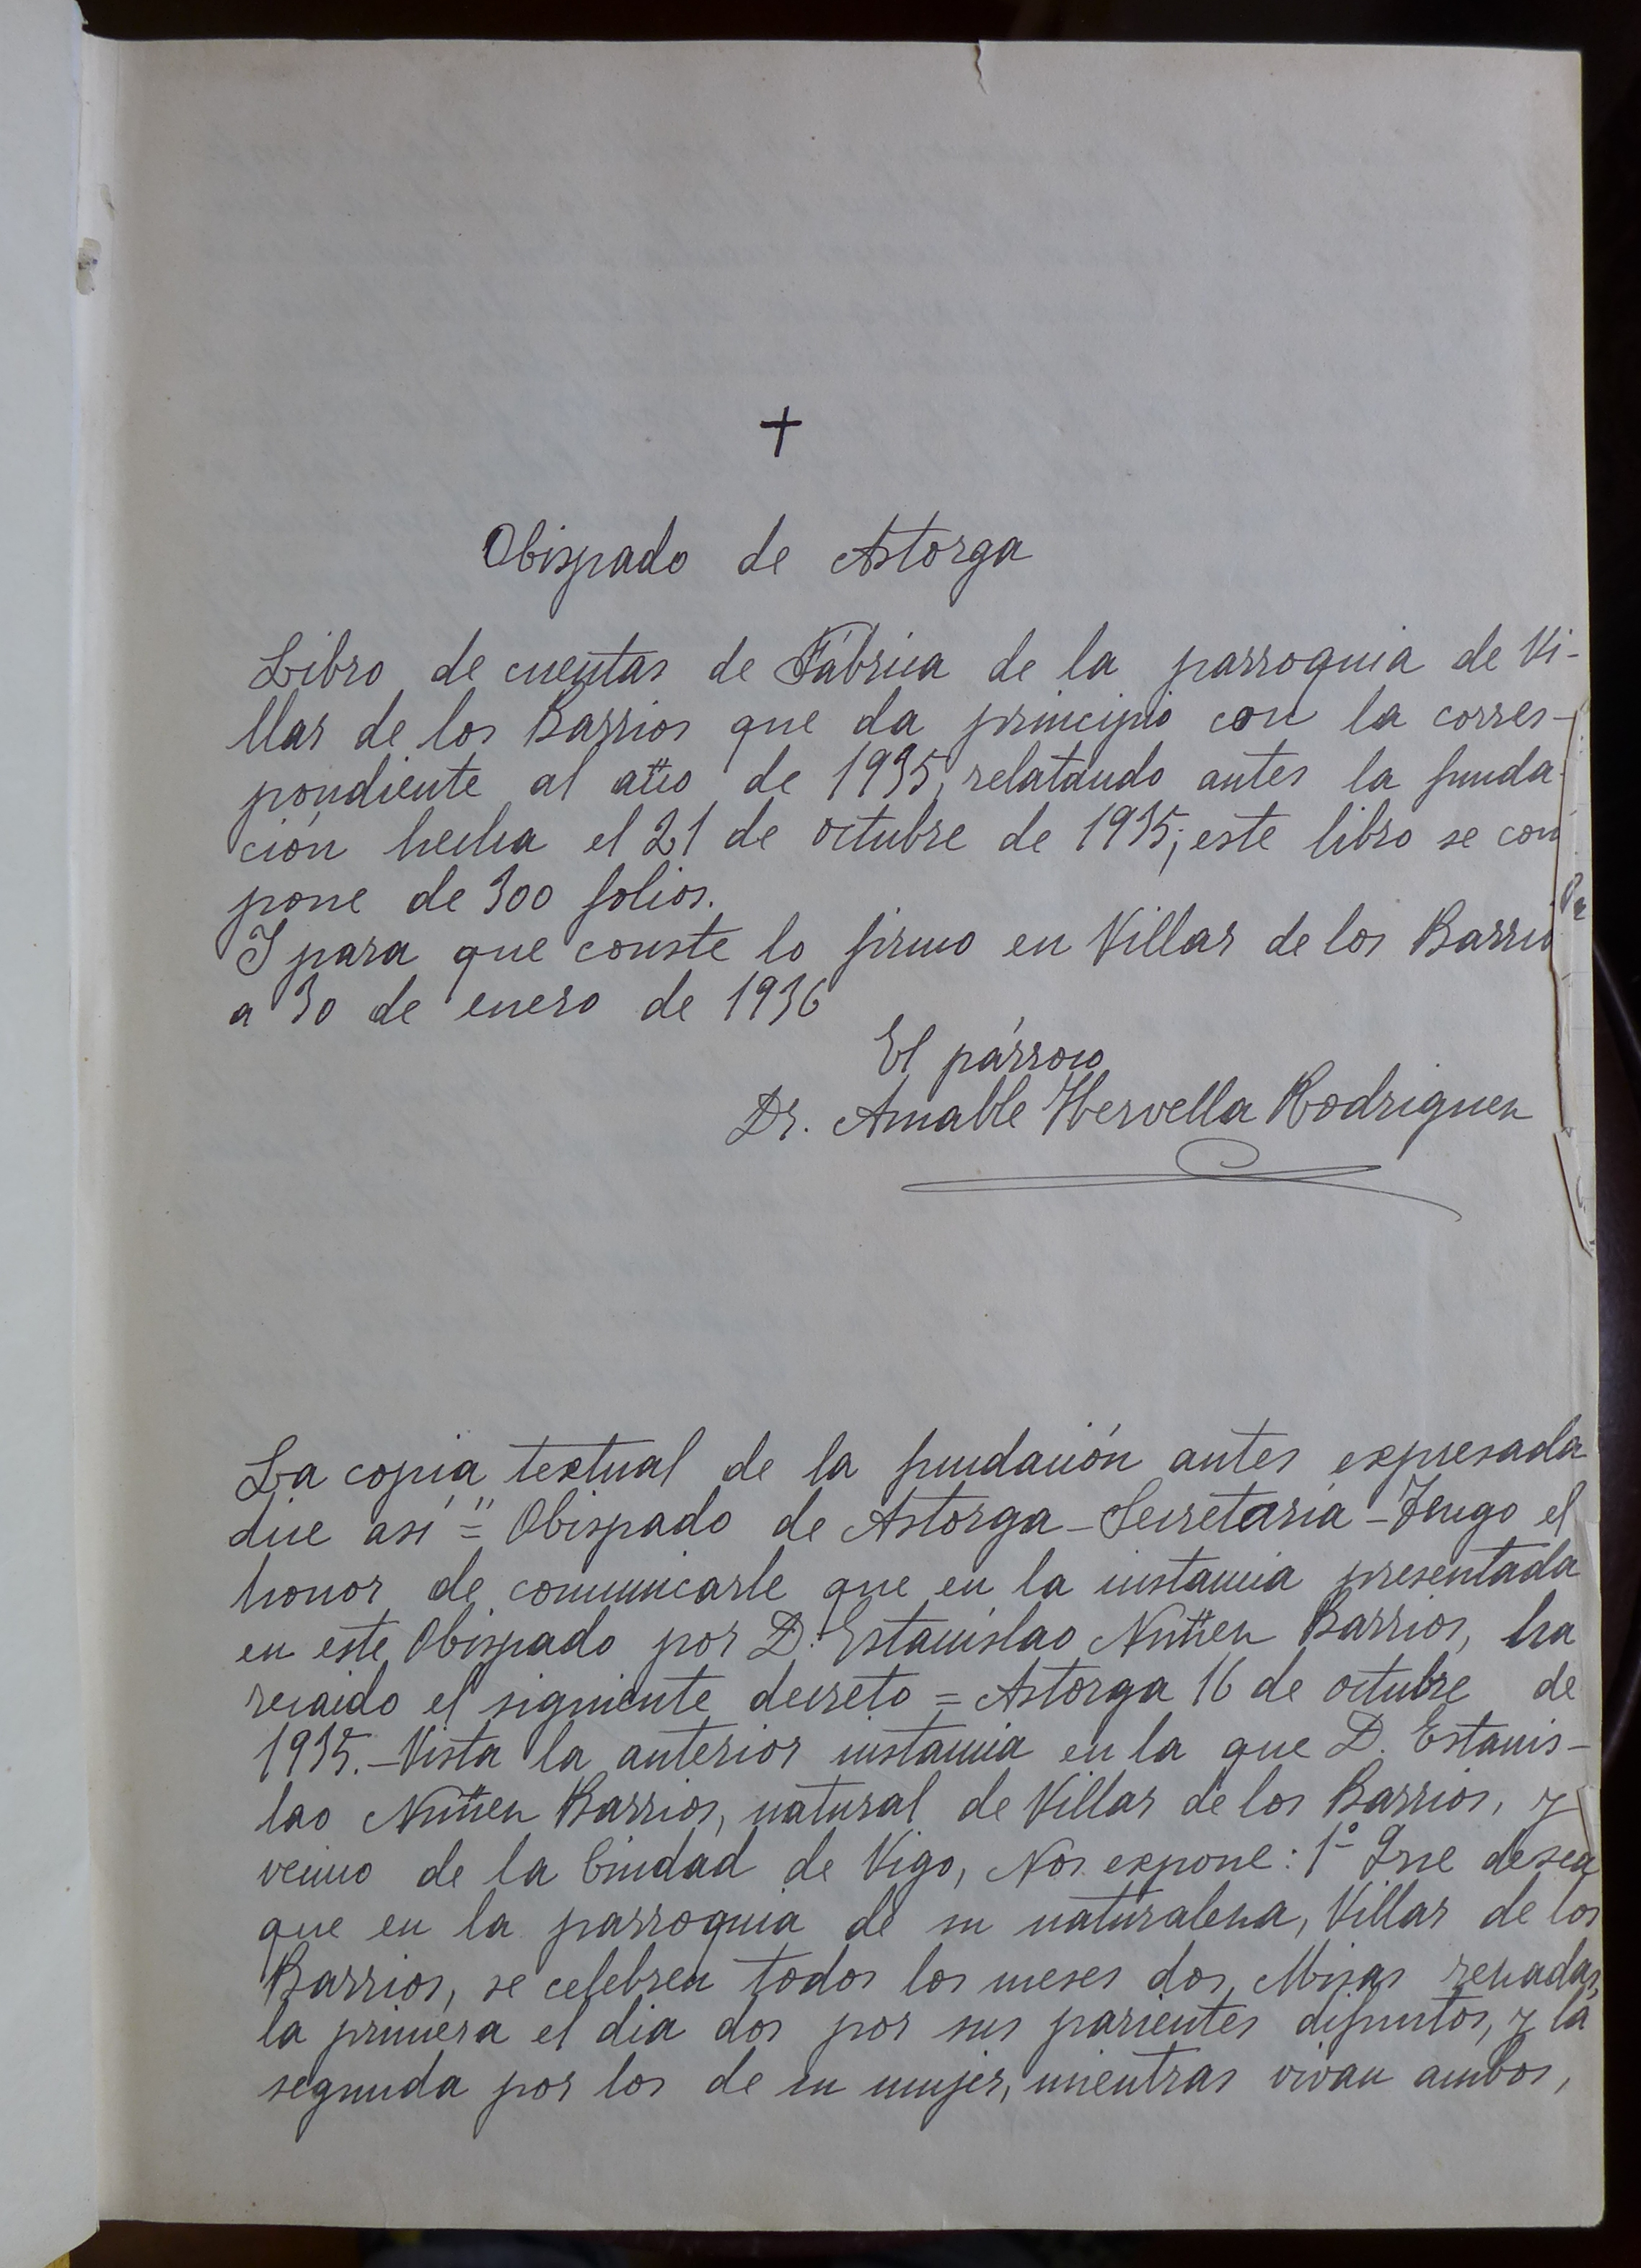 +
Obispado de Astorga
Libro de cuentas de Fábrica de la parroquia de Vi-
llar de los Barrios que da principio con la corres-
pondiente al año de 1935, relatando antes la funda-
ción hecha el 21 de octubre de 1935; este libro se com
pone de 300 folios.
Y para que conste lo firmo en Villar de los Barrio
a 30 de enero de 1936
El párroco
Dr. Amable Hervella Rodriguez
La copia textual de la fundación antes expresada
dice así = "Obispado de Astorga - Secretaría - Tengo el
honor de comunicarle que en la instancia presentada
en este Obispado por D. Estanislao Nuñez Barrios, ha
recaido el siguiente decreto = Astorga 16 de octubre de
1935. - Vista la anterior instancia en la que D. Estanis-
lao Nuñez Barrios, natural de Villar de los Barrios, y
vecino de la Ciudad de Vigo, Nos expone: 1º Que desea
que en la parroquia de su naturaleza, Villar de los
Barrios, se celebren todos los meses dos Misas rezadas,
la primera el dia dos por sus parientes difuntos, y la
segunda por los de su mujer, mientras vivan ambos,